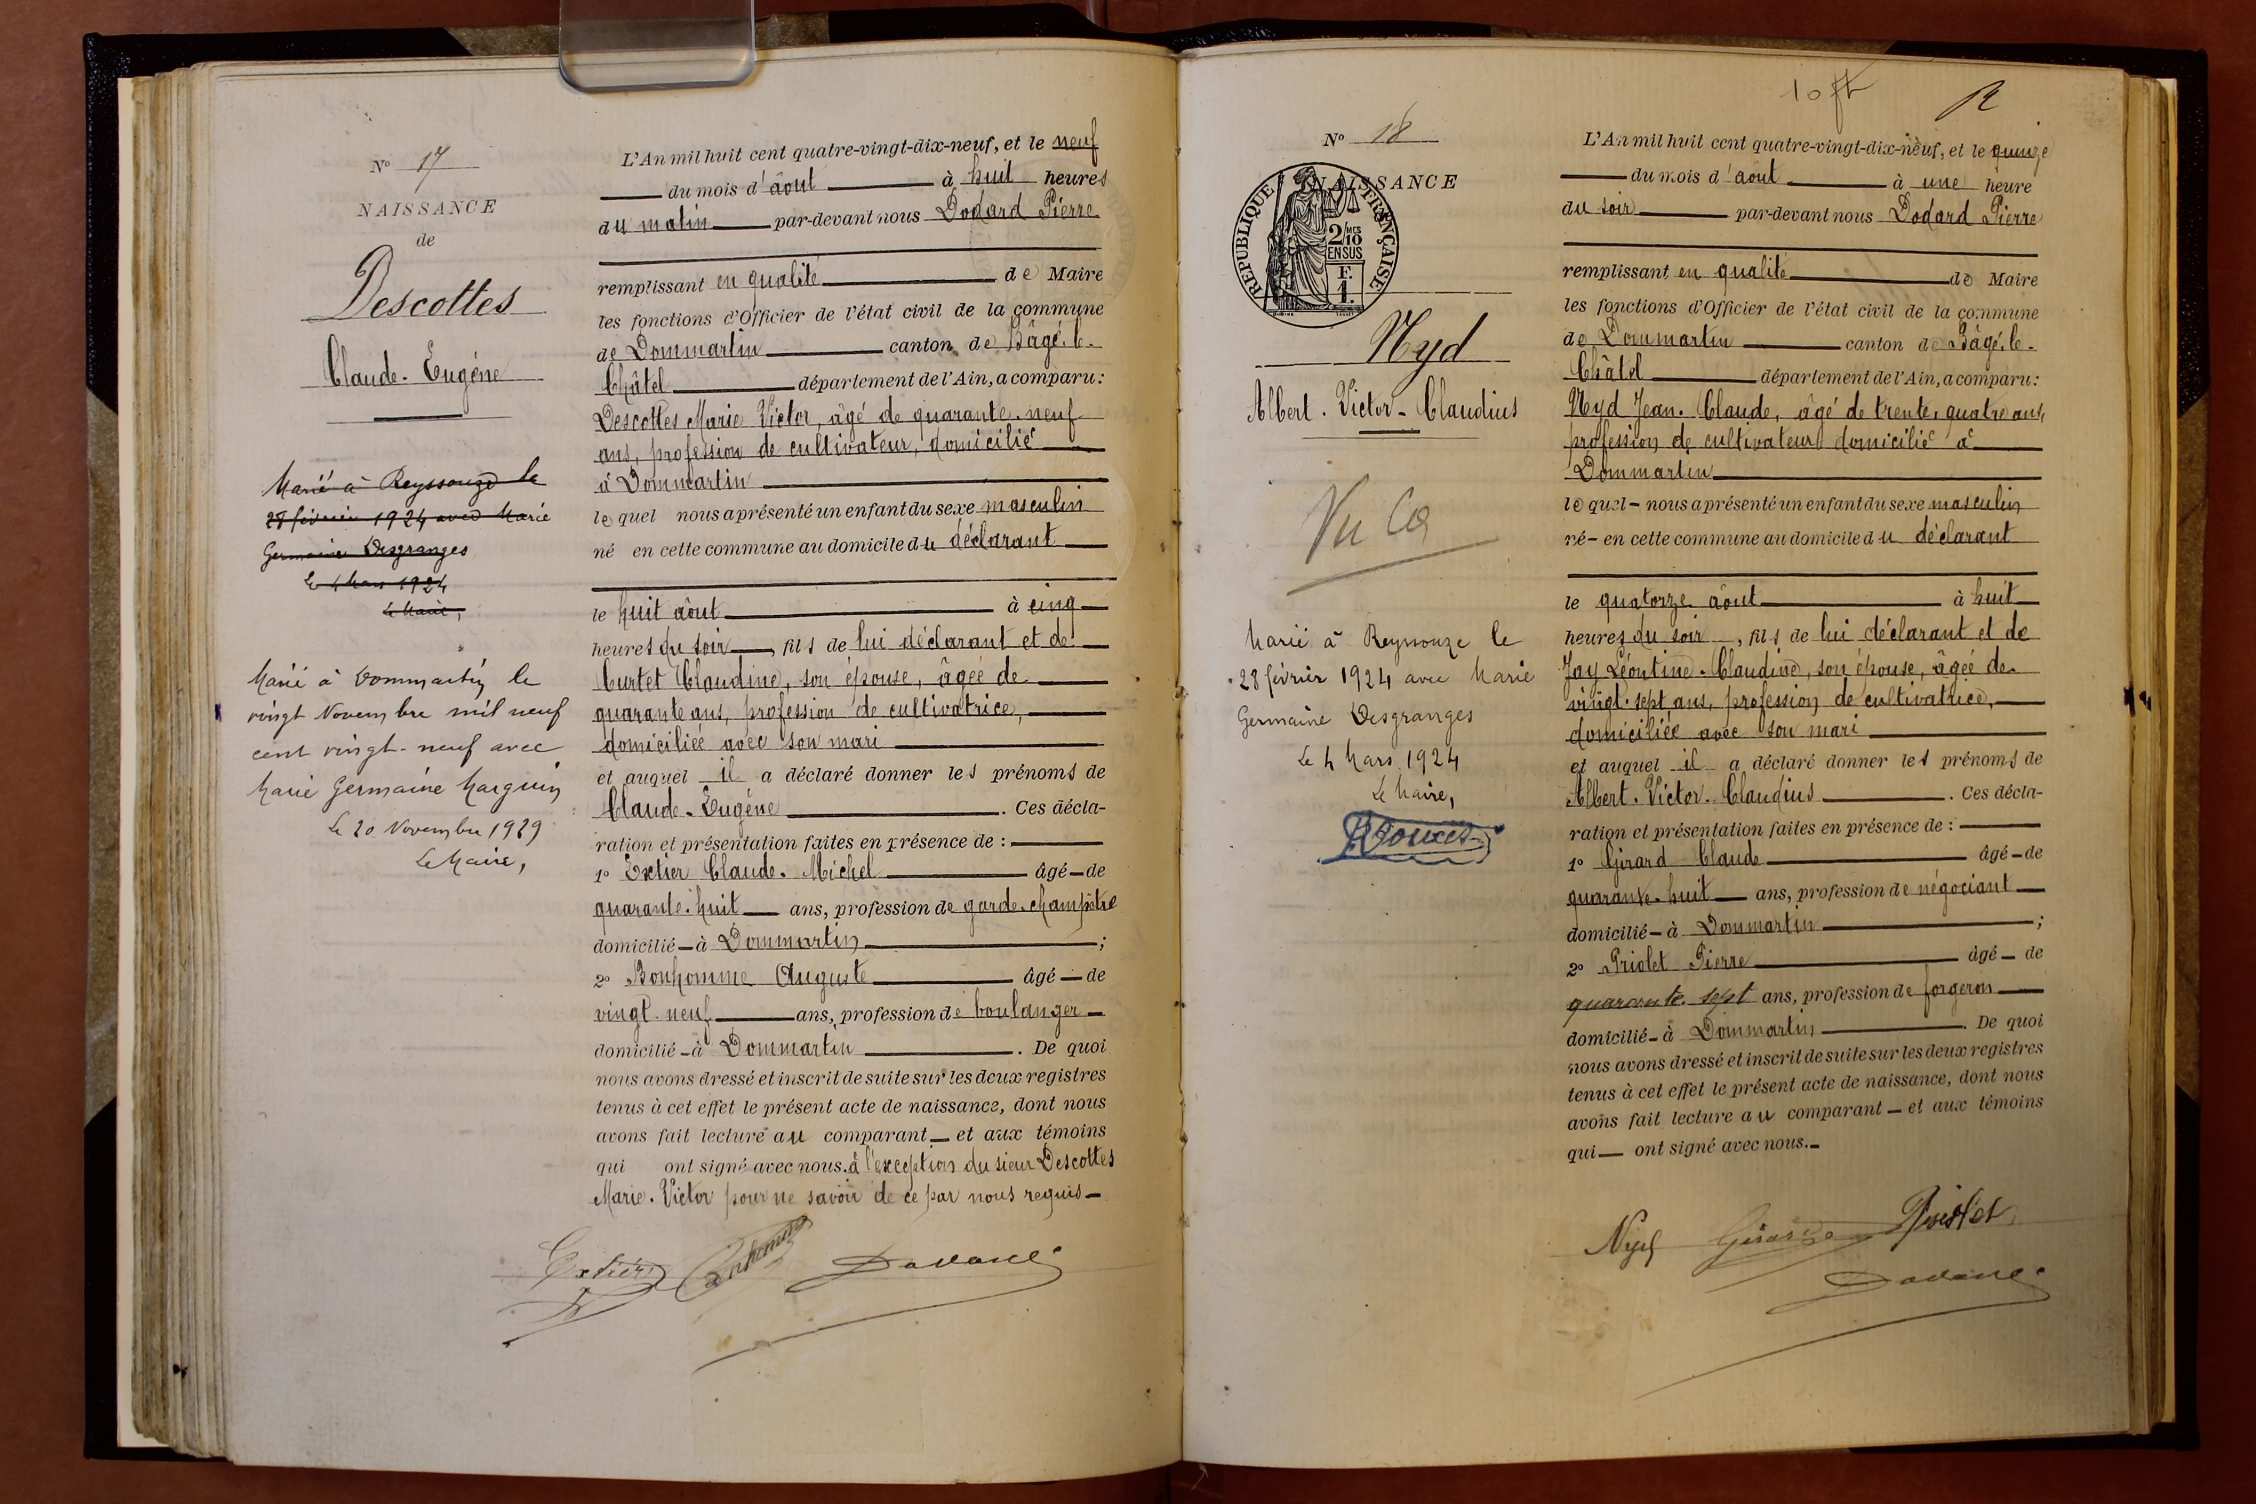 Nº 17
NAISSANCE
de
Descottes
Claude-Eugène
Marié à Reyssouze le
28 février 1924 avec Marie
Germaine Desgranges
le 4 Mars 1924
Le Maire,
Marié à Dommartin le
vingt Novembre mil neuf
cent vingt-neuf avec
Marie Germaine Marguin
Le 20 Novembre 1929
Le Maire,
L'An mil huit cent quatre-vingt-dix-neuf, et le neuf
du mois d'août à huit heures
du matin par-devant nous Dodard Pierre
remplissant en qualité de Maire
les fonctions d'Officier de l'état civil de la commune
de Dommartin canton de Bâgé-le-
Châtel département de l'Ain, a comparu:
Descottes Marie Victor, âgé de quarante-neuf
ans, profession de cultivateur, domicilié
à Dommartin
le quel nous a présenté un enfant du sexe masculin
né en cette commune au domicile du déclarant
le huit août à cinq
heures du soir, fils de lui déclarant et de
Curtet Claudine, son épouse, âgée de
quarante ans, profession de cultivatrice,
domiciliée avec son mari
et auquel il a déclaré donner les prénoms de
Claude-Eugène. Ces décla-
ration et présentation faites en présence de :
1º Extier Claude-Michel âgé de
quarante-huit ans, profession de garde-champêtre
domicilié à Dommartin ;
2º Bonhomme Auguste âgé de
vingt-neuf ans, profession de boulanger
domicilié à Dommartin. De quoi
nous avons dressé et inscrit de suite sur les deux registres
tenus à cet effet le présent acte de naissance, dont nous
avons fait lecture au comparant et aux témoins
qui ont signé avec nous. à l'exception du sieur Descottes
Marie-Victor pour ne savoir de ce par nous requis
Extier Bonhomme Dodard
10 ft
Nº 18
NAISSANCE
REPUBLIQUE FRANÇAISE
2/10 MES
EN SUS
F.
1.
Nyd
Albert-Victor-Claudius
Vu
Marié à Reyssouze le
28 février 1924 avec Marie
Germaine Desgranges
Le 4 Mars 1924
Le Maire,
L'An mil huit cent quatre-vingt-dix-neuf, et le quinze
du mois d'août à une heure
du soir par-devant nous Dodard Pierre
remplissant en qualité de Maire
les fonctions d'Officier de l'état civil de la commune
de Dommartin canton de Bâgé-le-
Châtel département de l'Ain, a comparu:
Nyd Jean-Claude, âgé de trente-quatre ans,
profession de cultivateur domicilié à
Dommartin
le quel nous a présenté un enfant du sexe masculin
né en cette commune au domicile du déclarant
le quatorze août à huit
heures du soir, fils de lui déclarant et de
Jay Léontine-Claudine, son épouse, âgée de
vingt-sept ans, profession de cultivatrice,
domiciliée avec son mari
et auquel il a déclaré donner les prénoms de
Albert-Victor-Claudius. Ces décla-
ration et présentation faites en présence de :
1º Girard Claude âgé de
quarante-huit ans, profession de négociant
domicilié à Dommartin ;
2º Priolet Pierre âgé de
quarante-sept ans, profession de forgeron
domicilié à Dommartin. De quoi
nous avons dressé et inscrit de suite sur les deux registres
tenus à cet effet le présent acte de naissance, dont nous
avons fait lecture au comparant et aux témoins
qui ont signé avec nous.
Nyd Girard Priolet
Dodard